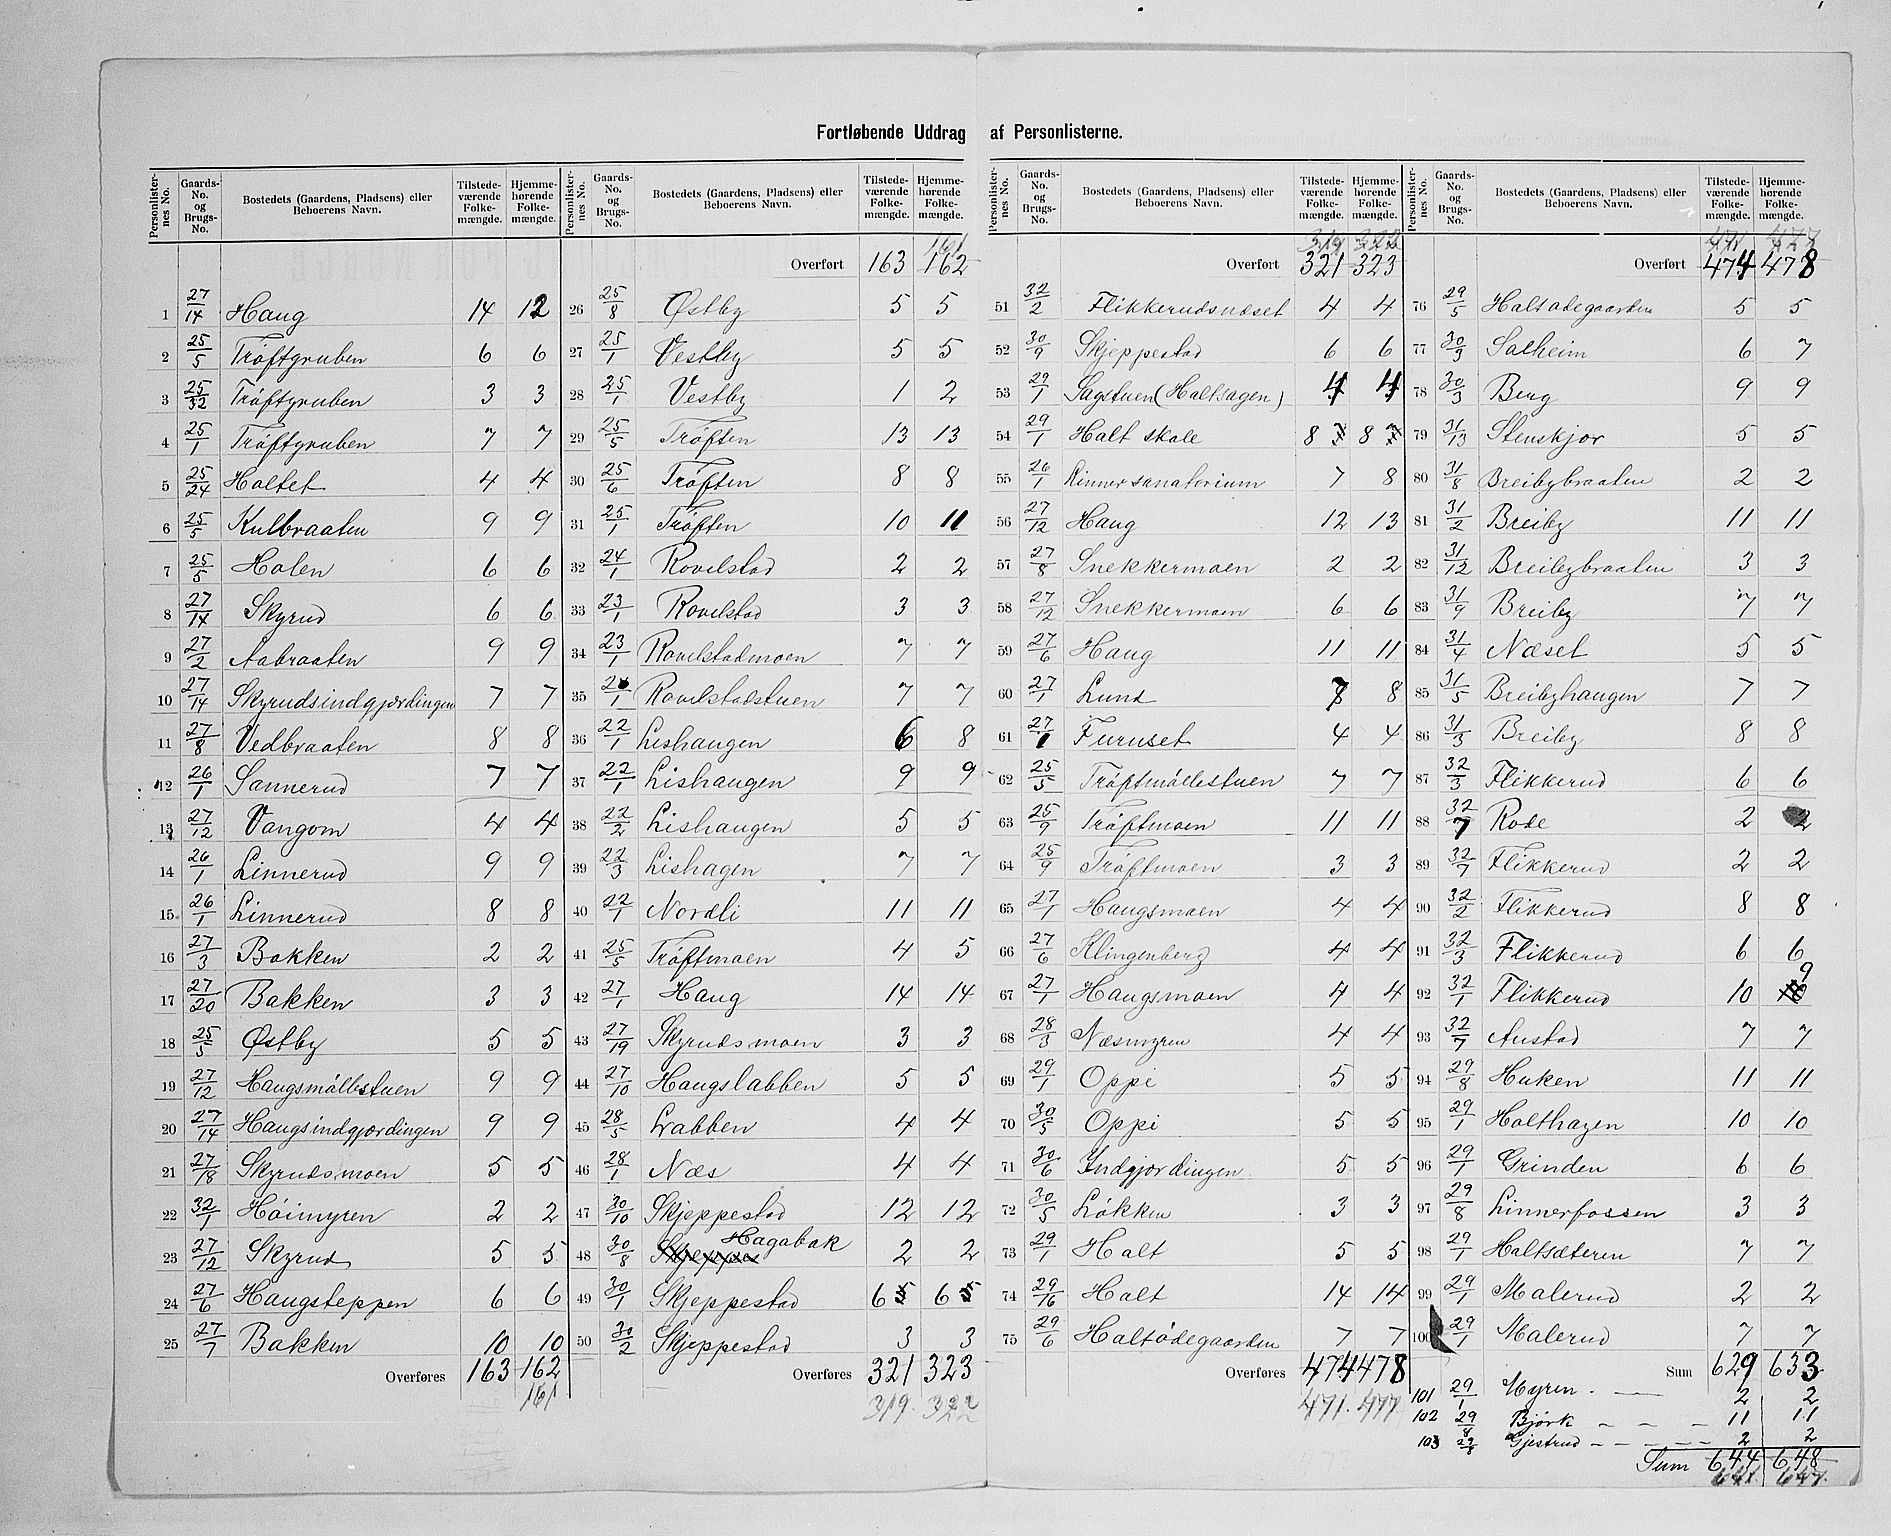 Fortløbende Uddrag af Personlisterne.
Personlister-nes No. Gaards-No. og Brugs-No. Bostedets (Gaardens, Pladsens) eller Beboerens Navn. Tilstede-værende Folke-mængde. Hjemme-hørende Folke-mængde.
1 27/14 Haug 14 12
2 25/5 Trøftgruben 6 6
3 25/32 Trøftgruben 3 3
4 25/1 Trøftgruben 7 7
5 25/24 Holtet 4 4
6 25/5 Kulbraaten 9 9
7 25/5 Holen 6 6
8 27/14 Skyrud 6 6
9 27/2 Aabraaten 9 9
10 27/14 Skyrudsindgjærdingen 7 7
11 27/8 Vedbraaten 8 8
12 26/1 Sannerud 7 7
13 27/12 Vangom 4 4
14 26/1 Linnerud 9 9
15 26/1 Linnerud 8 8
16 27/3 Bakken 2 2
17 27/20 Bakken 3 3
18 25/5 Østby 5 5
19 27/12 Haugsmøllestuen 9 9
20 27/14 Haugsindgjærdingen 9 9
21 27/18 Skyrudsmoen 5 5
22 32/1 Høimyren 2 2
23 27/12 Skyrud 5 5
24 27/6 Haugsteppen 6 6
25 27/7 Bakken 10 10
Overføres 163 162
161
Personlister-nes No. Gaards-No. og Brugs-No. Bostedets (Gaardens, Pladsens) eller Beboerens Navn. Tilstede-værende Folke-mængde. Hjemme-hørende Folke-mængde.
161
Overført 163 162
26 25/8 Østby 5 5
27 25/1 Vestby 5 5
28 25/1 Vestby 1 2
29 25/5 Trøften 13 13
30 25/6 Trøften 8 8
31 25/1 Trøften 10 11
32 24/1 Rovelstad 2 2
33 23/1 Rovelstad 3 3
34 23/1 Rovelstadmoen 7 7
35 Rovelstadstuen 7 7
36 22/1 Lishaugen 6 8
37 22/1 Lishaugen 9 9
38 22/2 Lishaugen 5 5
39 22/3 Lishagen 7 7
40 22/1 Nordli 11 11
41 25/5 Trøftmoen 4 5
42 27/1 Haug 14 14
43 27/19 Skyrudsmoen 3 3
44 27/10 Haugslabben 5 5
45 28/5 Labben 4 4
46 28/1 Næs 4 4
47 30/10 Skjeppestad 12 12
48 30/8 Hagabak 2 2
49 30/1 Skjeppestad 6 5 6 5
50 30/2 Skjeppestad 3 3
Overføres 321 323
319. 322
Personlister-nes No. Gaards-No. og Brugs-No. Bostedets (Gaardens, Pladsens) eller Beboerens Navn. Tilstede-værende Folke-mængde. Hjemme-hørende Folke-mængde.
319 322
Overført 321 323
51 32/2 Flikkerudsnæset 4 4
52 30/9 Skjeppestad 6 6
53 29/1 Sagstuen (Holtsagen) 4 4
54 29/1 Holt skole 8 7 8 7
55 26/1 Linnersanatorium 7 8
56 27/12 Haug 12 13
57 27/8 Snekkermoen 2 2
58 27/12 Snekkermoen 6 6
59 27/6 Haug 11 11
60 27/1 Lund 7 8
61 27/1 Furuset 4 4
62 25/5 Trøftmøllestuen 7 7
63 25/9 Trøftmoen 11 11
64 25/9 Trøftmoen 3 3
65 27/1 Haugsmoen 4 4
66 27/6 Klingenberg 4 4
67 27/1 Haugsmoen 4 4
68 28/3 Næsmyren 4 4
69 29/1 Oppi 5 5
70 30/5 Oppi 5 5
71 30/6 Indgjordingen 5 5
72 30/5 Løkken 3 3
73 29/1 Holt 5 5
74 29/16 Holt 14 14
75 29/6 Holtødegaarden 7 7
Overføres 474 478
471. 477
Personlister-nes No. Gaards-No. og Brugs-No. Bostedets (Gaardens, Pladsens) eller Beboerens Navn. Tilstede-værende Folke-mængde. Hjemme-hørende Folke-mængde.
471 477
Overført 474 478
76 29/5 Holtødegaarden 5 5
77 30/9 Solheim 6 7
78 30/3 Berg 9 9
79 31/13 Stenskjør 5 5
80 31/8 Breibybraaten 2 2
81 31/2 Breiby 11 11
82 31/12 Breibybraaten 3 3
83 31/9 Breiby 7 7
84 31/4 Næset 5 5
85 31/5 Breibyhaugen 7 7
86 31/3 Breiby 8 8
87 32/3 Flikkerud 6 6
88 32/7 Rode 2 2
89 32/7 Flikkerud 2 2
90 32/2 Flikkerud 8 8
91 32/3 Flikkerud 6 6
92 32/1 Flikkerud 10 9
93 32/7 Austad 7 7
94 29/8 Huken 11 11
95 29/1 Holthagen 10 10
96 29/1 Grinden 6 6
97 29/8 Linnerfossen 3 3
98 29/1 Holtsæteren 7 7
99 29/1 Malerud 2 2
100 29/1 Malerud 7 7
Sum 629 633
101 29/1 Myren 2 2
102 29/8 Bjørk 11 11
103 29/8 Gjestrud 2 2
Sum 644 648
641. 647.